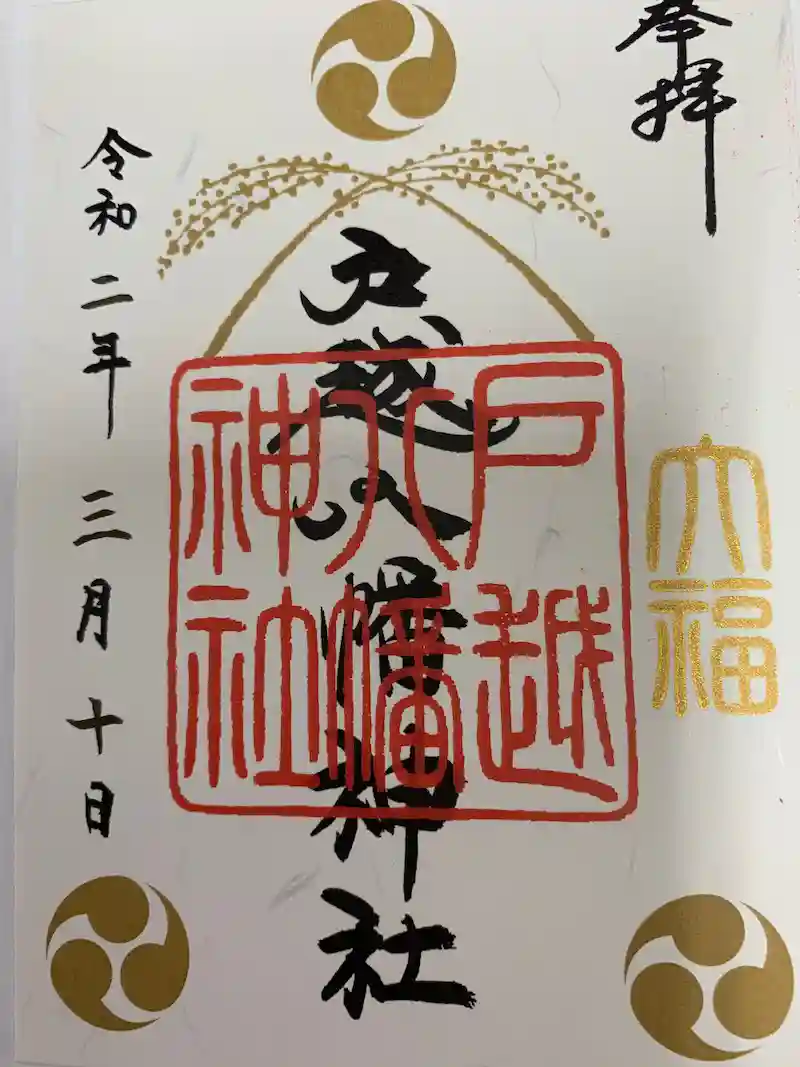 奉拝
大福
戸越八幡神社
戸越
八幡
神社
令和二年三月十日